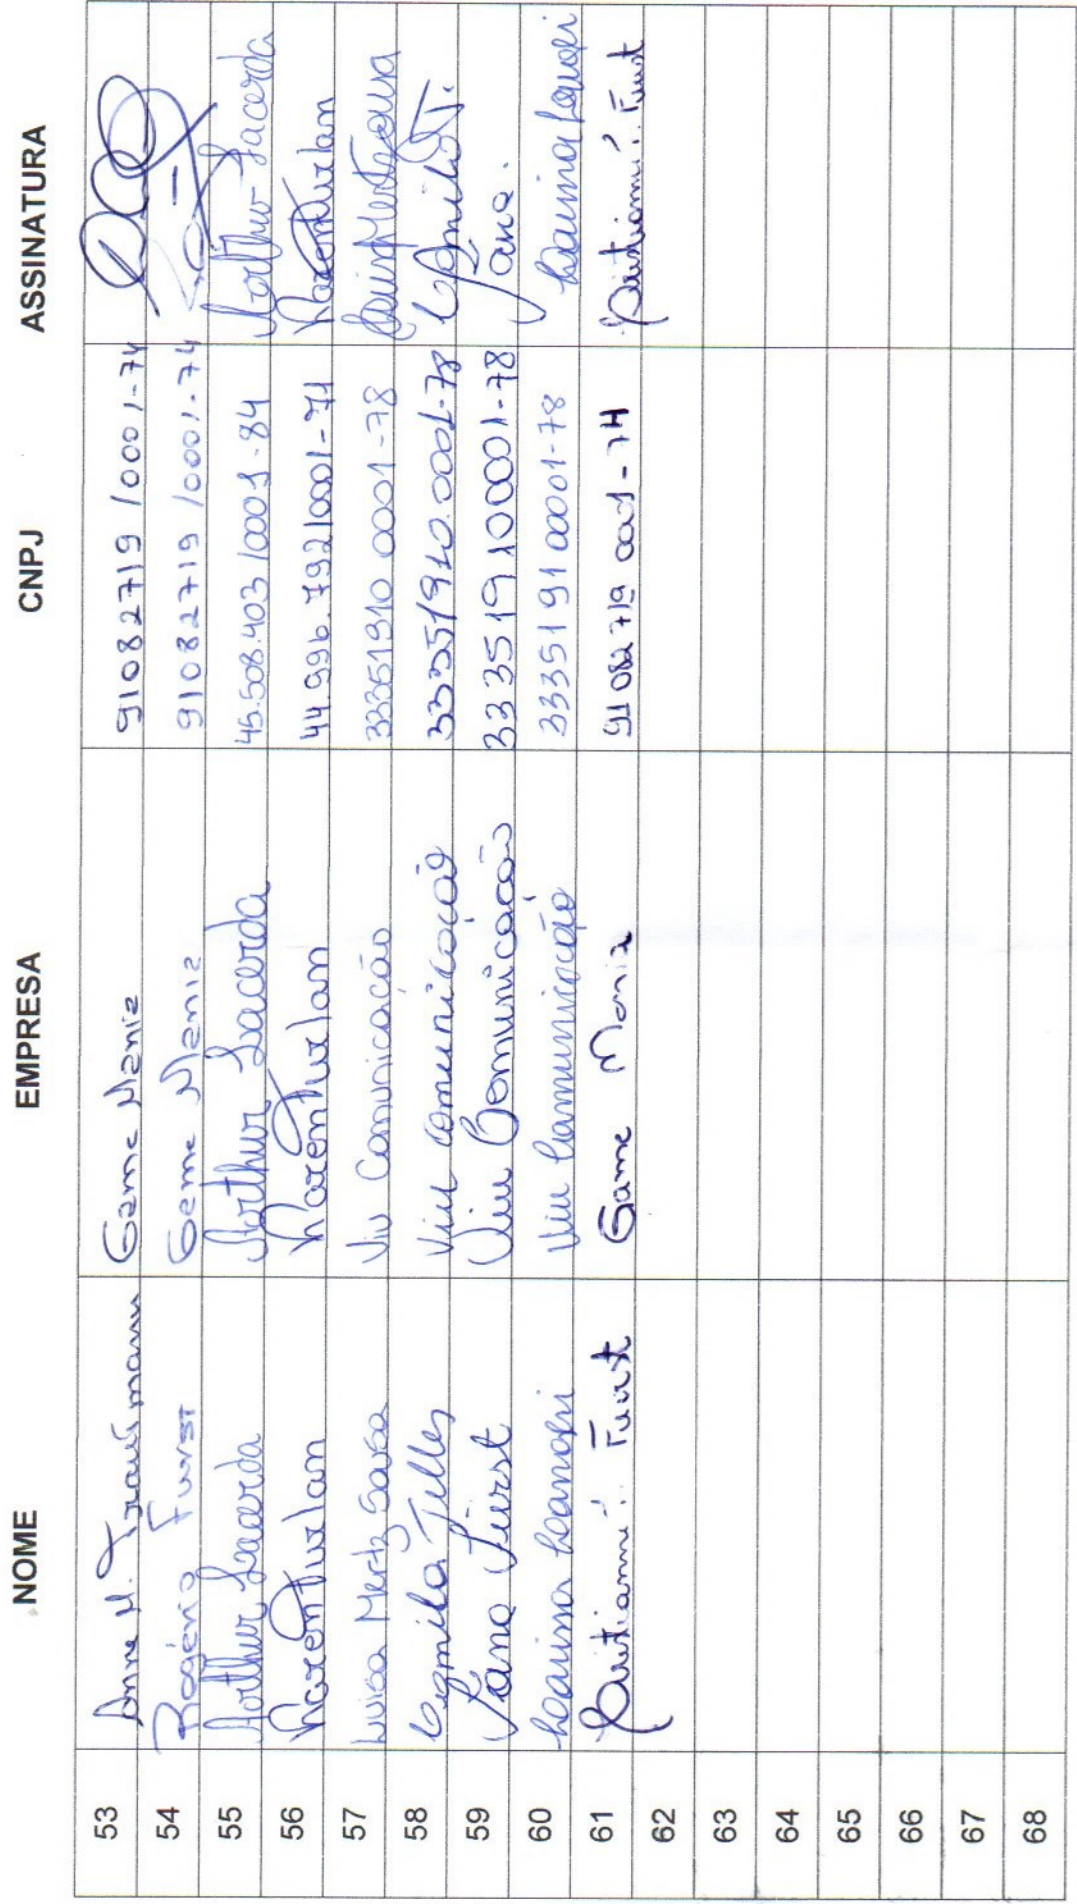 NOME EMPRESA CNPJ ASSINATURA
53 Anne M. Trautmann Game Mania 91082719/0001-74
54 Rogério Furst Game Mania 91082719/0001-74
55 Arthur Lacerda Arthur Lacerda 45.508.403/0001-84 Arthur Lacerda
56 Karen Furlan Karen Furlan 44.996.792/0001-71 Karen Furlan
57 Luisa Mertz Viu Comunicação 33351910 0001-78
58 Camila Telles Viu Comunicação 33351910.0001-78 Camila T.
59 Jana Fürst Viu Comunicação 33351910001-78 Jana.
60 Viu Comunicação 3335191 00001-78
61 Game Mania 91082719 0001-74
62
63
64
65
66
67
68